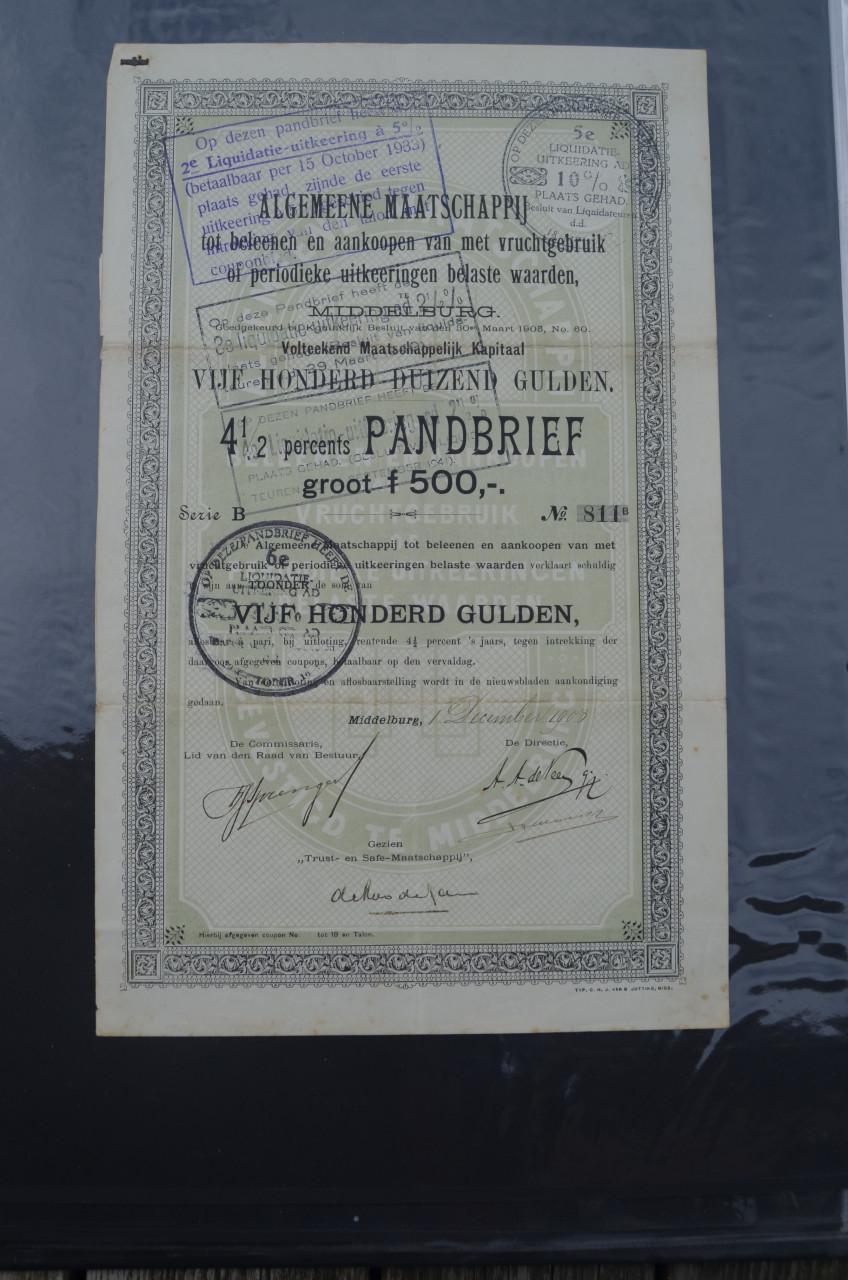 Op dezen pandbrief
2e Liquidatie-uitkeering à 5%
(betaalbaar per 15 October 1933)
plaats gehad, zijnde de eerste
uitkeering tegen
den talon
OP DEZE
5e
LIQUIDATIE-
UITKEERING AD
10%
PLAATS GEHAD.
Besluit van Liquidateuren
d.d.
ALGEMEENE MAATSCHAPPIJ
tot beleenen en aankoopen van met vruchtgebruik
of periodieke uitkeeringen belaste waarden,
Op deze Pandbrief heeft de
3e liquidatie-uitkeering ad 2½%
plaats
29 Maart
MIDDELBURG.
Goedgekeurd bij Koninklijk Besluit van den 30en Maart 1903, No. 60.
Volteekend Maatschappelijk Kapitaal
VIJF HONDERD DUIZEND GULDEN.
DEZEN PANDBRIEF HEEFT
PLAATS GEHAD.
TEUREN SEPTEMBER 1941).
4½ percents PANDBRIEF
groot f 500,-.
Serie B No. 811B
Algemeene Maatschappij tot beleenen en aankoopen van met
vruchtgebruik of periodieke uitkeeringen belaste waarden verklaart schuldig
te zijn aan TOONDER de som van
VIJF HONDERD GULDEN,
aflosbaar à pari, bij uitloting, rentende 4½ percent 's jaars, tegen intrekking der
daarvoor afgegeven coupons, betaalbaar op den vervaldag.
Van uitloting en aflosbaarstelling wordt in de nieuwsbladen aankondiging
gedaan.
OP DEZE PANDBRIEF HEEFT DE
6e
LIQUIDATIE-
UITKEERING AD
PLAATS GEHAD
Middelburg, 1 December
De Commissaris, De Directie,
Lid van den Raad van Bestuur,
Gezien
„Trust- en Safe-Maatschappij",
Hierbij afgegeven coupon No. tot 18 en Talon.